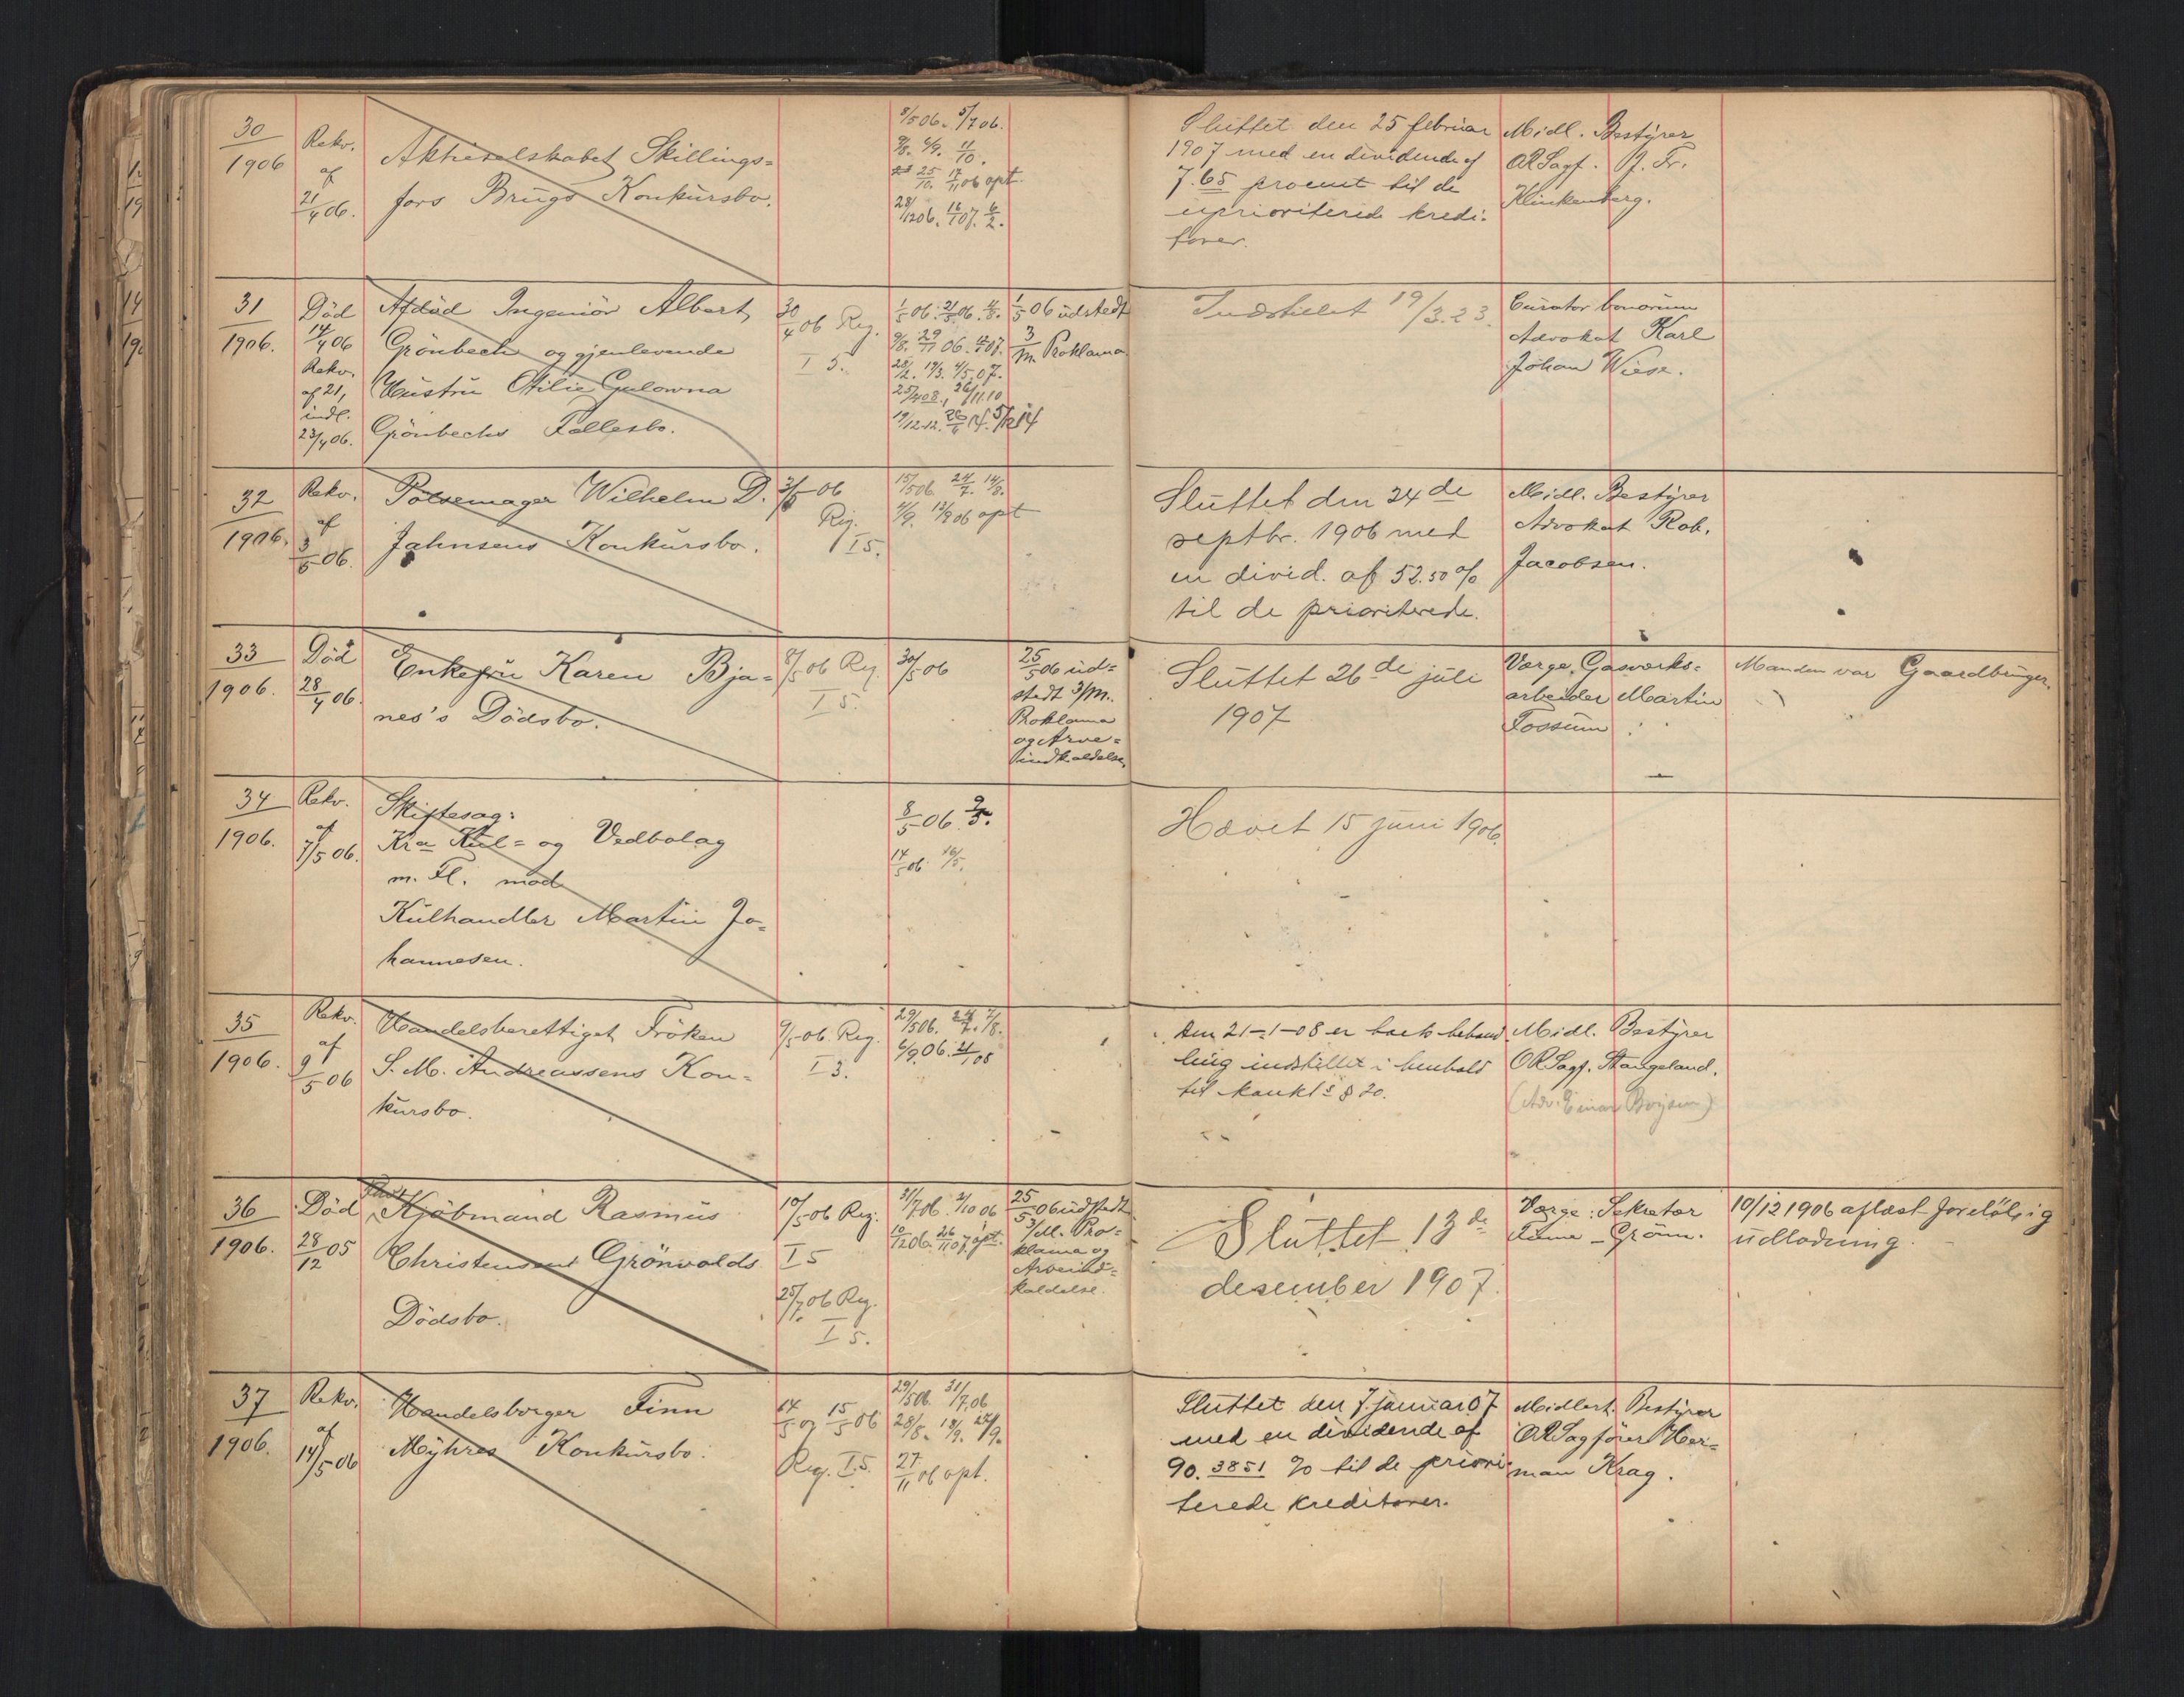 30
1906
Rekv.
af
21/4 06.
Aktieselskabet Skillings-
fors Brugs Konkursbo.
8/5 06. 5/7 06.
9/8. 4/9. 11/10.
25/10. 17/11 06 opt.
28/12 06. 16/1 07. 6/2.
Sluttet den 25 februar
1907 med en dividende af
7.65 procent til de
uprioriterede kredi-
torer.
Midl. Bestyrer
ORSagf. J. Fr.
Klinkenberg.
31
1906.
Död
14/4 06
Rekv.
af 21,
indl.
23/4 06.
Afdöd Ingeniör Albert
Grönbech og gjenlevende
Hustru Otilie Gulowna
Grönbechs Fællesbo.
30/4 06 Reg.
I 5.
1/5 06 udstedt
3/m. Proklama
Indstillet 19/3.23.
Curator bonorum
Advokat Karl
Johan Wiese.
32
1906.
Rekv.
af
3/5 06.
Pölsemager Wilhelm D.
Jahnsens Konkursbo.
3/5 06
Reg.
I 5.
15/5 06. 24/7. 14/8.
4/9. 12/9 06 opt
Sluttet den 24de
septbr. 1906 med
en divid. af 52.50 %
til de prioriterede.
Midl. Bestyrer
Advokat Rob.
Jacobsen.
33
1906.
Död
28/4 06.
Enkefru Karen Bja-
nes's Dödsbo.
8/5 06 Reg.
I 5.
30/5 06
25/5 06 ud-
stedt 3/m.
Proklama
og Arve-
indkaldelse.
Sluttet 26de juli
1907
Værge, Gasværks-
arbeider Martin
Fossum
Manden var Gaardbruger.
34
1906.
Rekv.
af
7/5 06.
Skiftesag:
Kra Kul- og Vedbolag
m. Fl. mod
Kulhandler Martin Jo-
hannesen.
8/5 06. 9/5.
14/5 06. 16/5.
Hævet 15 juni 1906.
35
1906.
Rekv.
af
9/5 06
Handelsberettiget Fröken
S. M. Andreassens Kon-
kursbo.
9/5 06. Reg.
I 3.
29/5 06. 24/7. 7/8.
6/9 06.
Den 21-1-08 er boets behand
ling indstillet i henhold
til konkl's § 20.
Midl. Bestyrer
ORSagf. Stangeland.
(Adv. Einar Boysen)
36
1906.
Död
28/12 05
Kjöbmand Rasmus
Christensens Grönvolds
Dödsbo.
10/5 06 Reg.
I 5
25/7 06 Reg.
I 5.
31/7 06. 2/10 06
25/5 06 udstedt
3/M. Pro-
klama og
Arveind-
kaldelse.
Sluttet 13de
desember 1907.
Værge: Sekretær
Grönn.
10/12 1906 aflæst foreløbig
udlodning.
37
1906.
Rekv.
af
14/5 06
Handelsborger Finn
Myhres Konkursbo.
14/5 og 15/5 06
Reg. I 5.
29/5 06. 31/7 06
28/8. 18/9. 24/9.
27/11 06 opt.
Sluttet den 7. januar 07
med en dividende af
90.3851 % til de priori-
terede kreditorer.
Midlert. Bestyrer
ORSagförer Her-
man Krag.